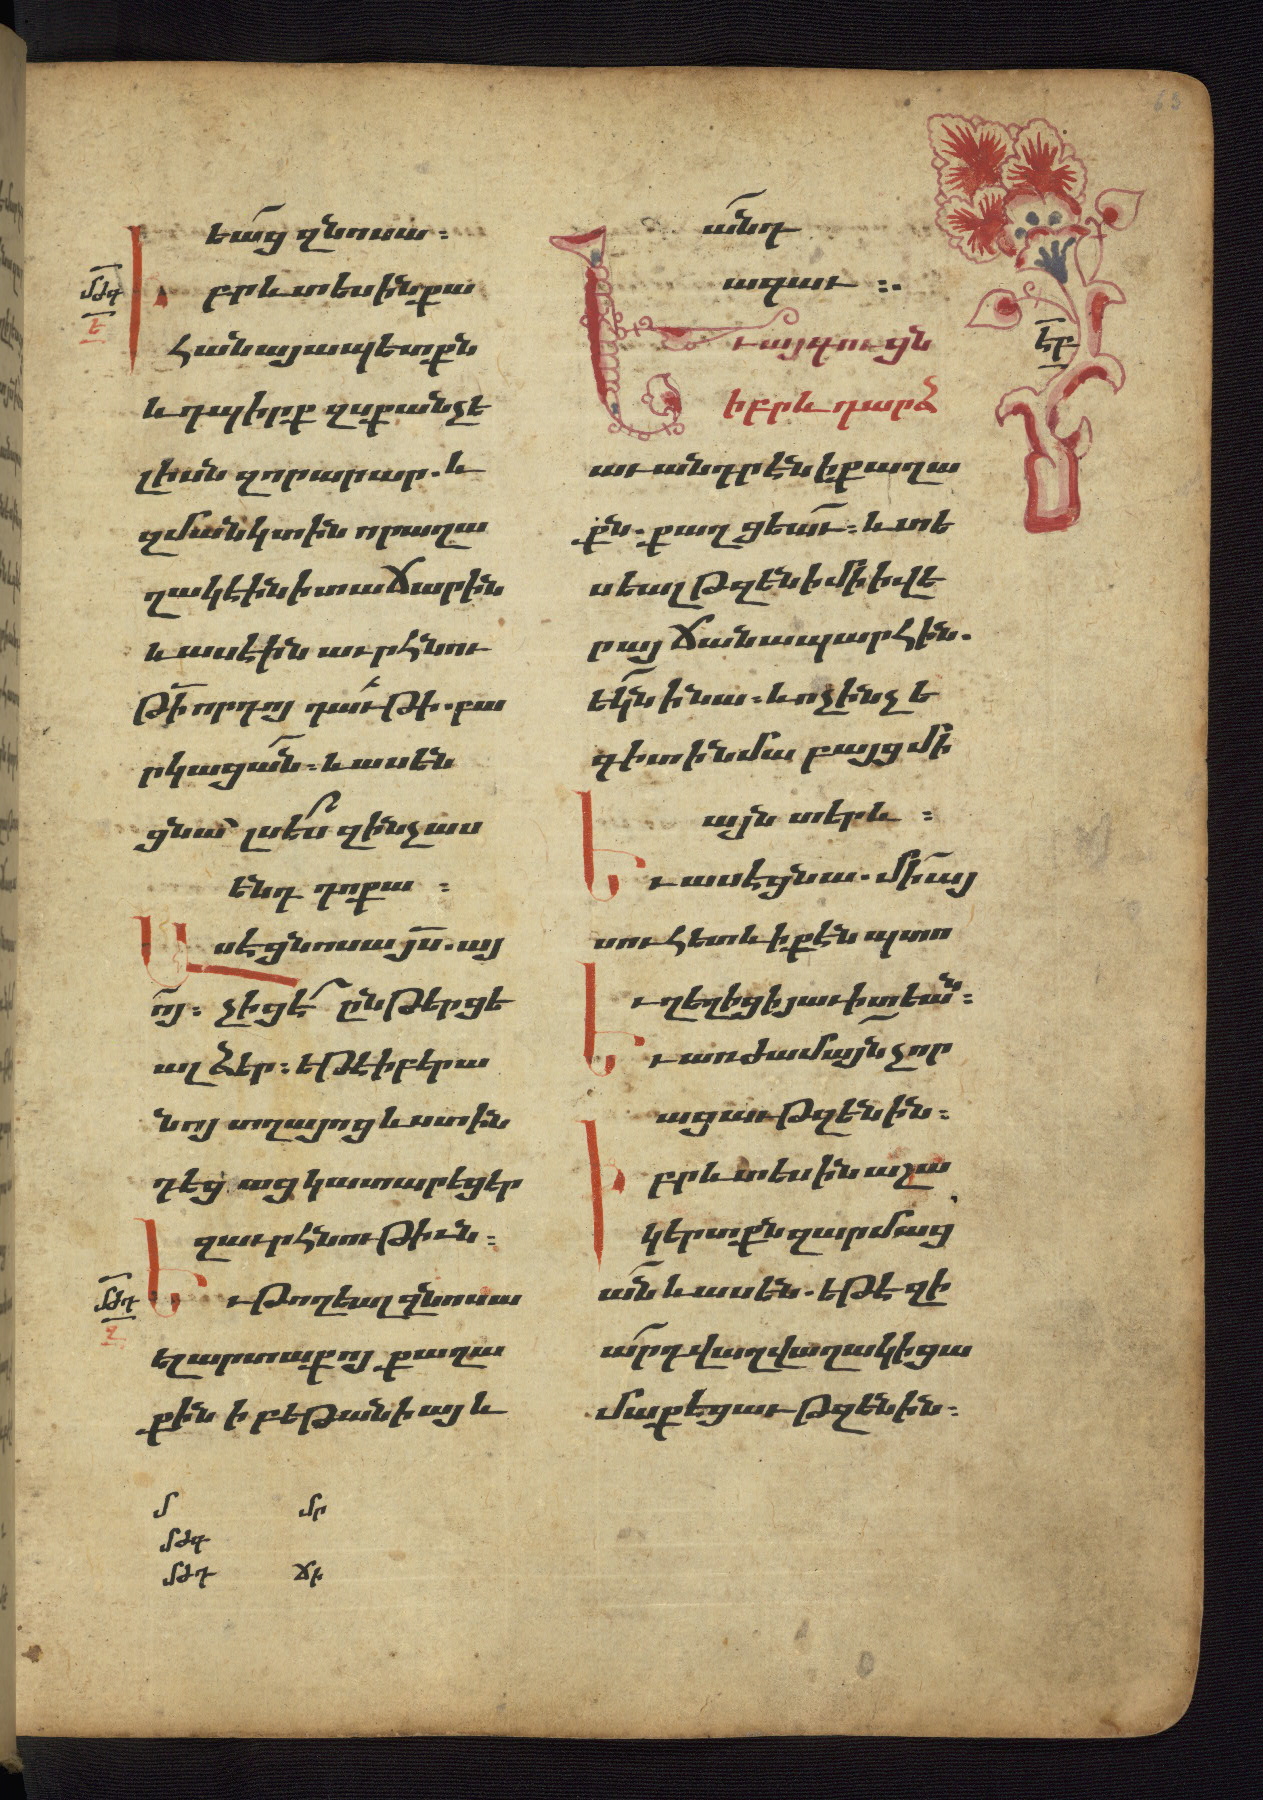 եաց զնոսա։
մժգ
ե
Իբրև տեսին քա
հանայապետքն
և դպիրք զսքանչե
լիսն զորարար. և
զմանկտին որաղա
ղակէին ի տաճարին
և ասէին աւրհնու
թի որդոյ դաւթի. բա
րկացան։ և ասեն
ցնա՝ լսե՞ս զինչ աս
են դոքա ։
Ասէ ցնոսա յս. այ
ոյ։ չիցե՞ ընթերցե
ալ ձեր։ եթէ ի բերա
նոյ տղայոց և ստին
դեց աց կատարեցեր
զաւրհնութիւն։
մժդ
զ
Եւ թողեալ զնոսա
ել արտաքոյ քաղա
քին ի բեթանիայ և
անդ
ագաւ ։.
Եւ այգուցն
իբրև դարձ
աւ անդրէն ի քաղա
քն. քաղցեաւ։ և տե
սեալ թզենի մի ի վե
րայ ճանապարհին.
եկն ի նա։ և ոչինչ ե
գիտ ի նմա բայց մի
այն տերև ։
Եւ ասէ ցնա. մի այ
սուհետև ի քէն պտո
ւղ եղիցի յաւիտեան։
Եւ առժամայն չոր
ացաւ թզենին։
Իբրև տեսին աշա
կերտքն զարմաց
ան և ասեն. եթէ զի
արդ վաղվաղակի ցա
մաքեցաւ թզենին։
մ մր
մժգ
մժդ ճի